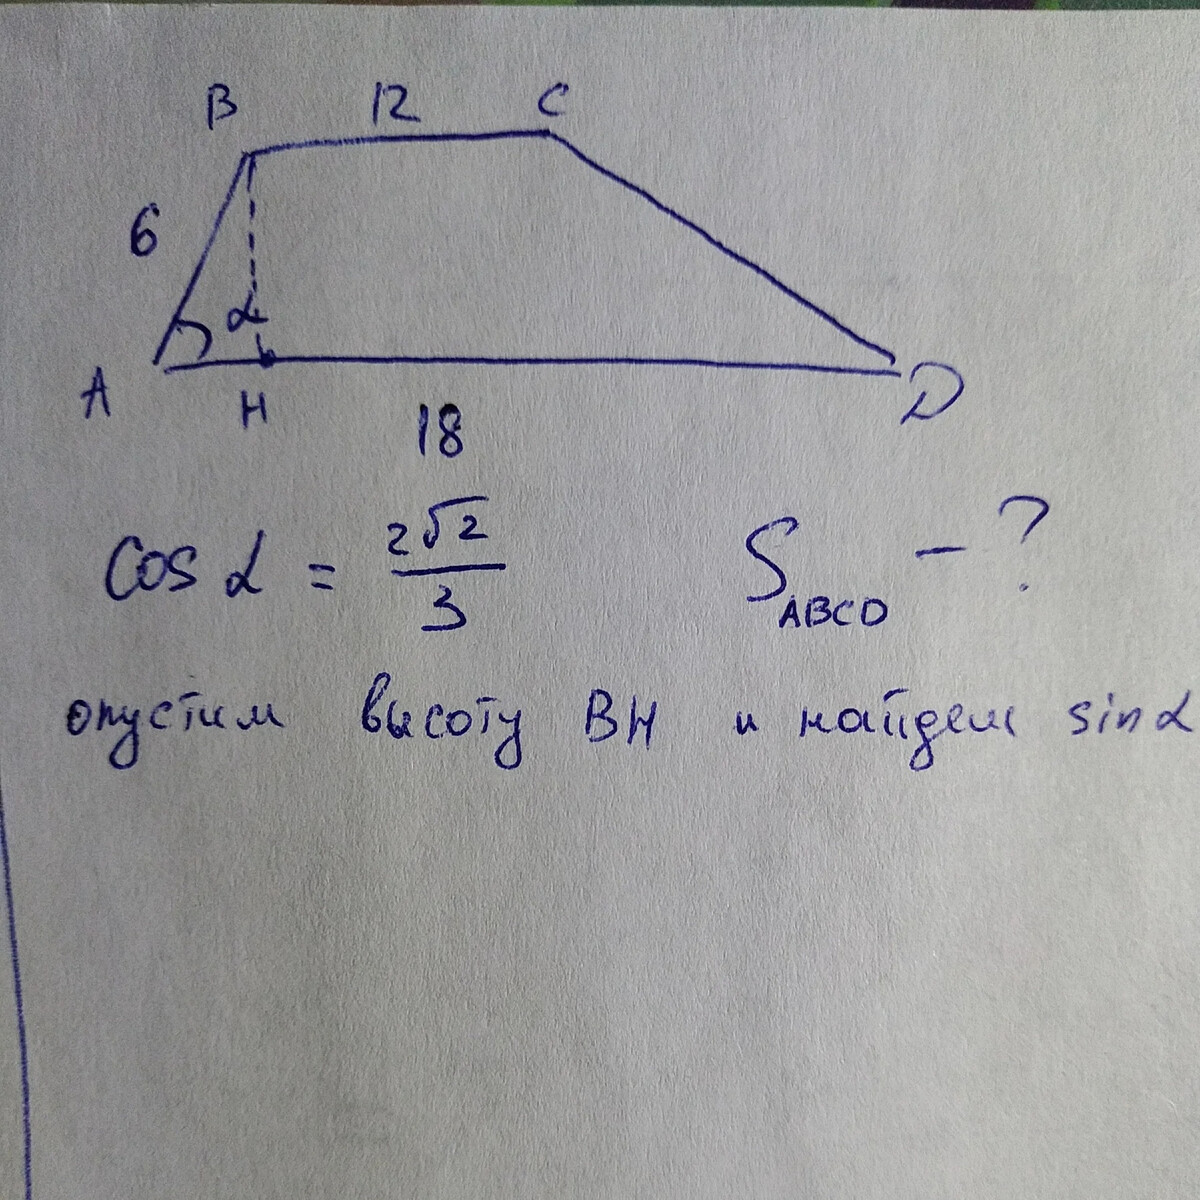 B 12 C
6
α
A H D
18
cos α = 2√2/3 S_ABCD - ?
опустим высоту BH и найдем sin α